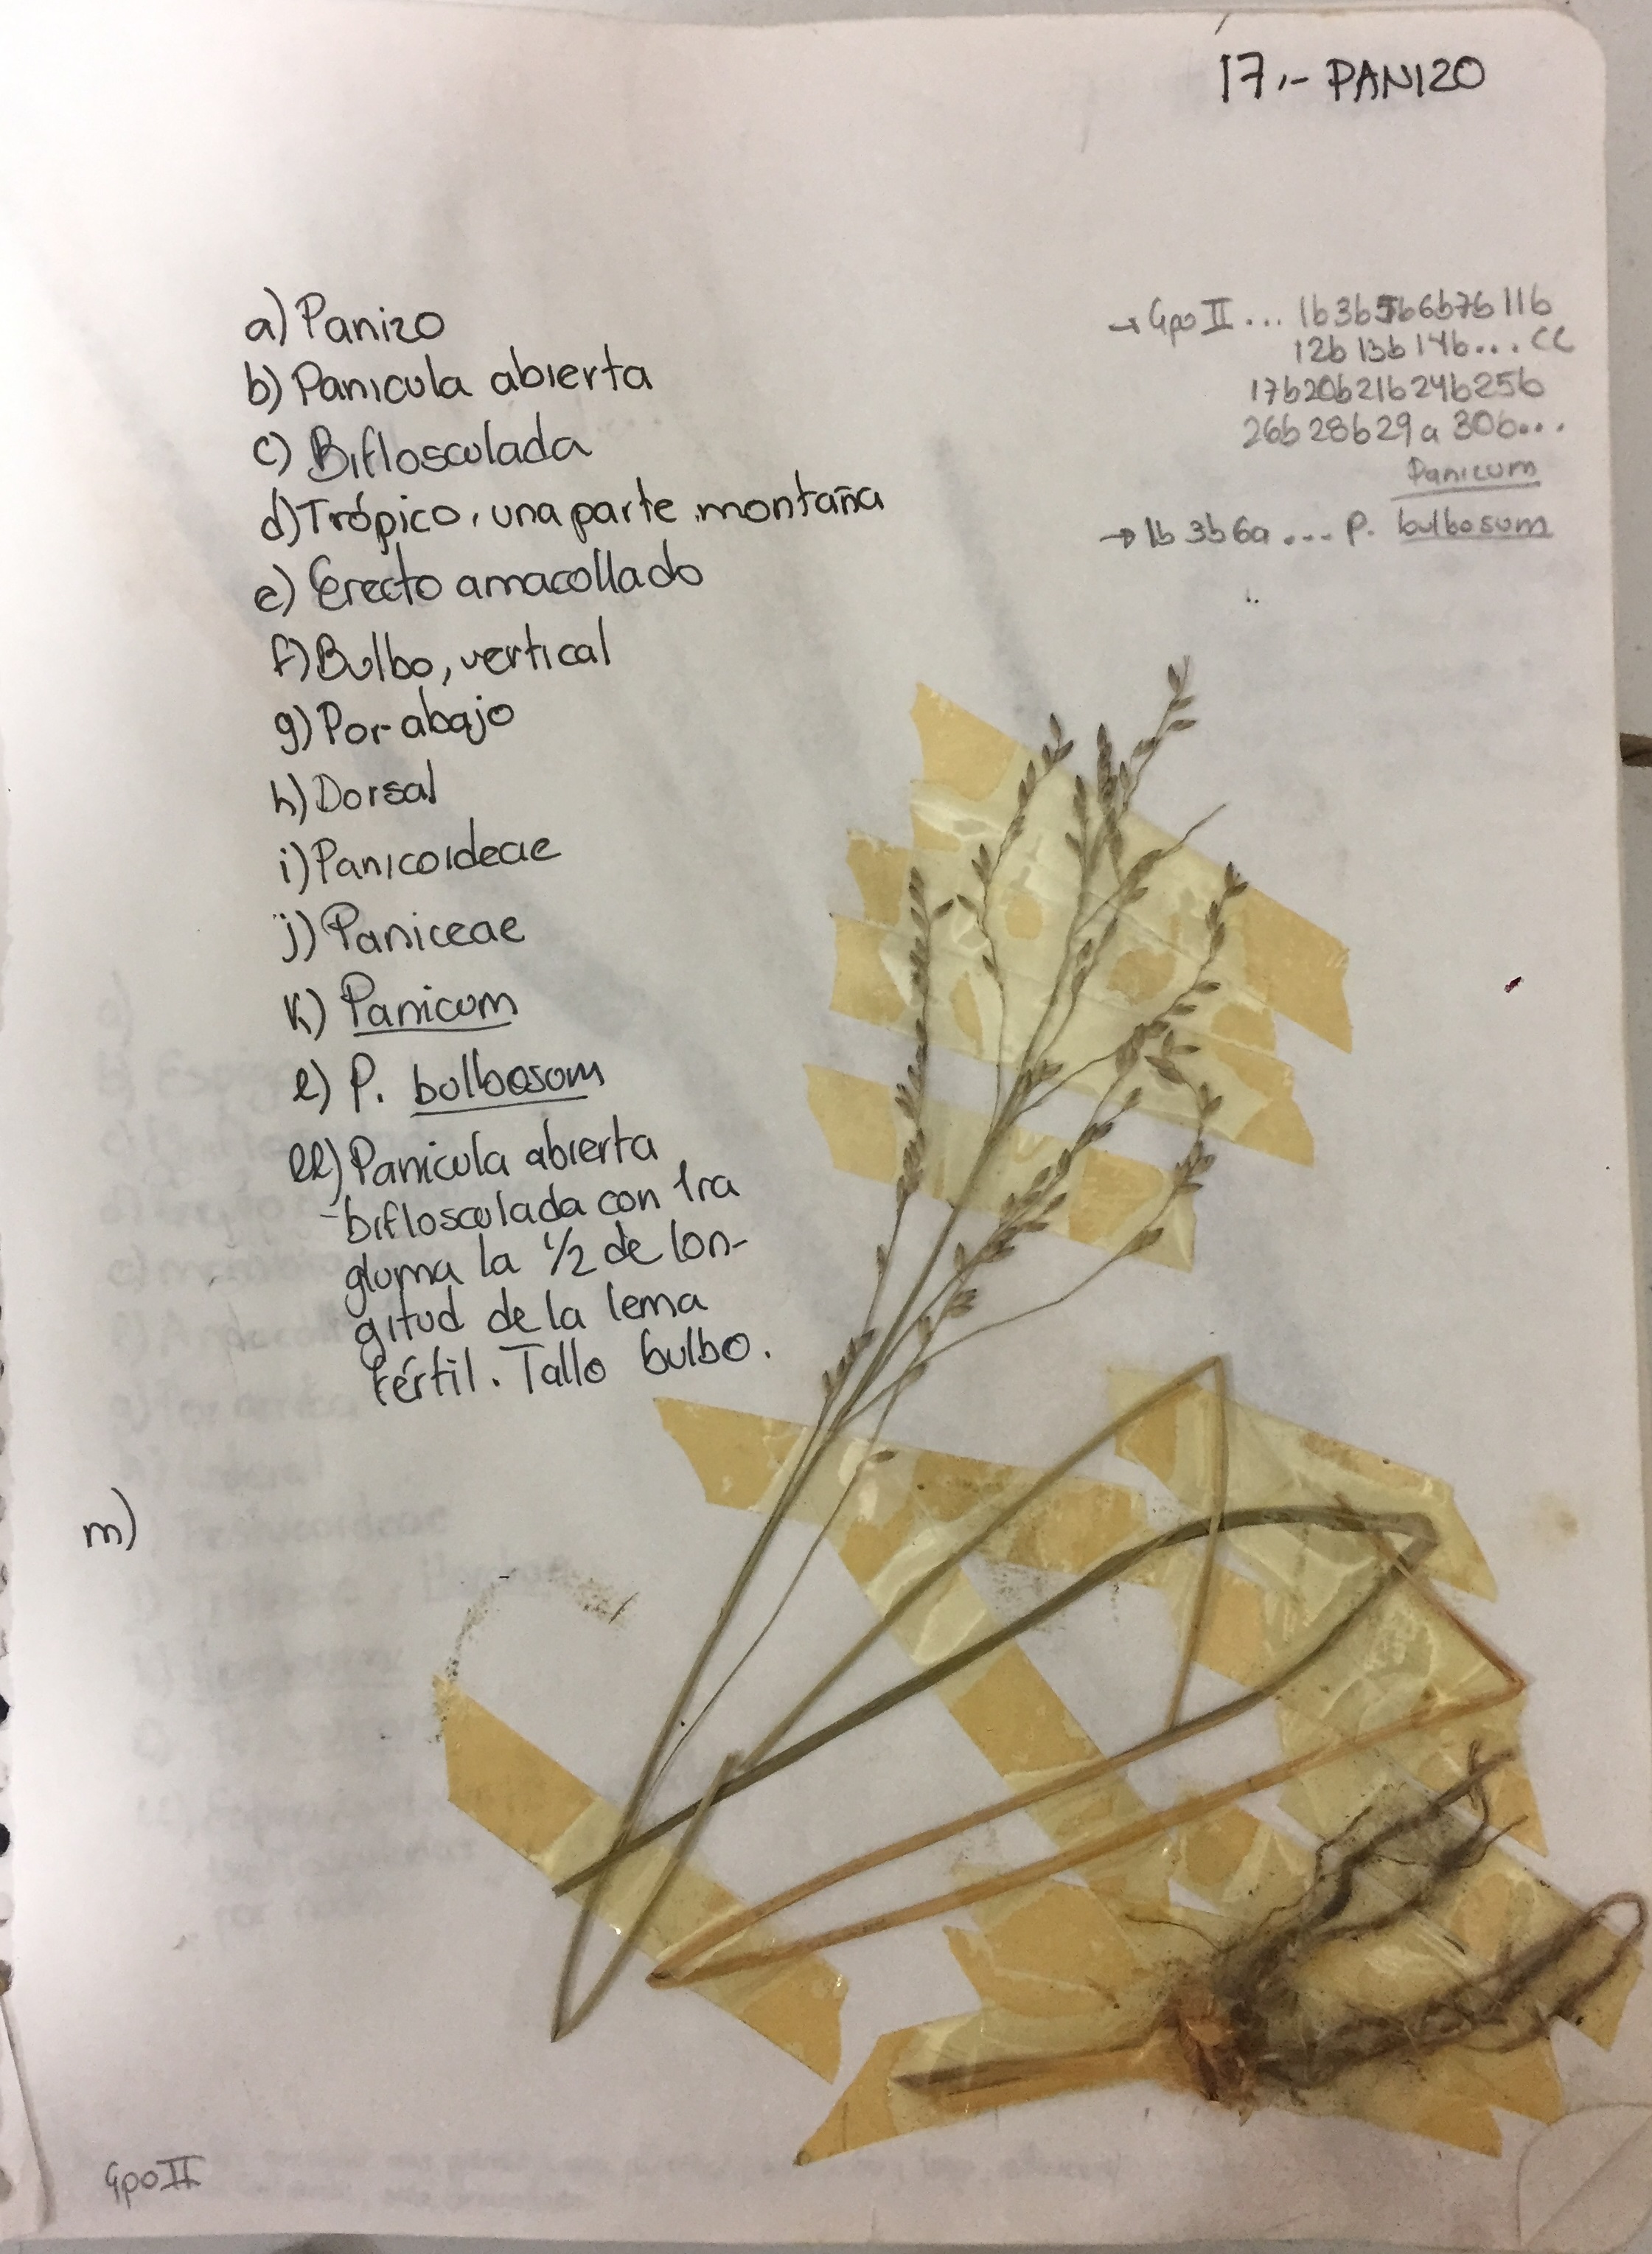 17.- PANIZO
a) Panizo
b) Panicula abierta
c) Biflosculada
d) Trópico, una parte montaña
e) Erecto amacollado
f) Bulbo, vertical
g) Por abajo
h) Dorsal
i) Panicoideae
j) Paniceae
k) Panicum
l) P. bulbosum
ll) Panicula abierta
biflosculada con 1ra
gluma la 1/2 de lon-
gitud de la lema
fértil. Tallo bulbo.
m)
→ Gpo II... 1b 3b 5b 6b 7b 11b
12b 13b 14b... CC
17b 20b 21b 24b 25b
26b 28b 29a 30b...
Panicum
→ 1b 3b 6a .... P. bulbosum
Gpo II